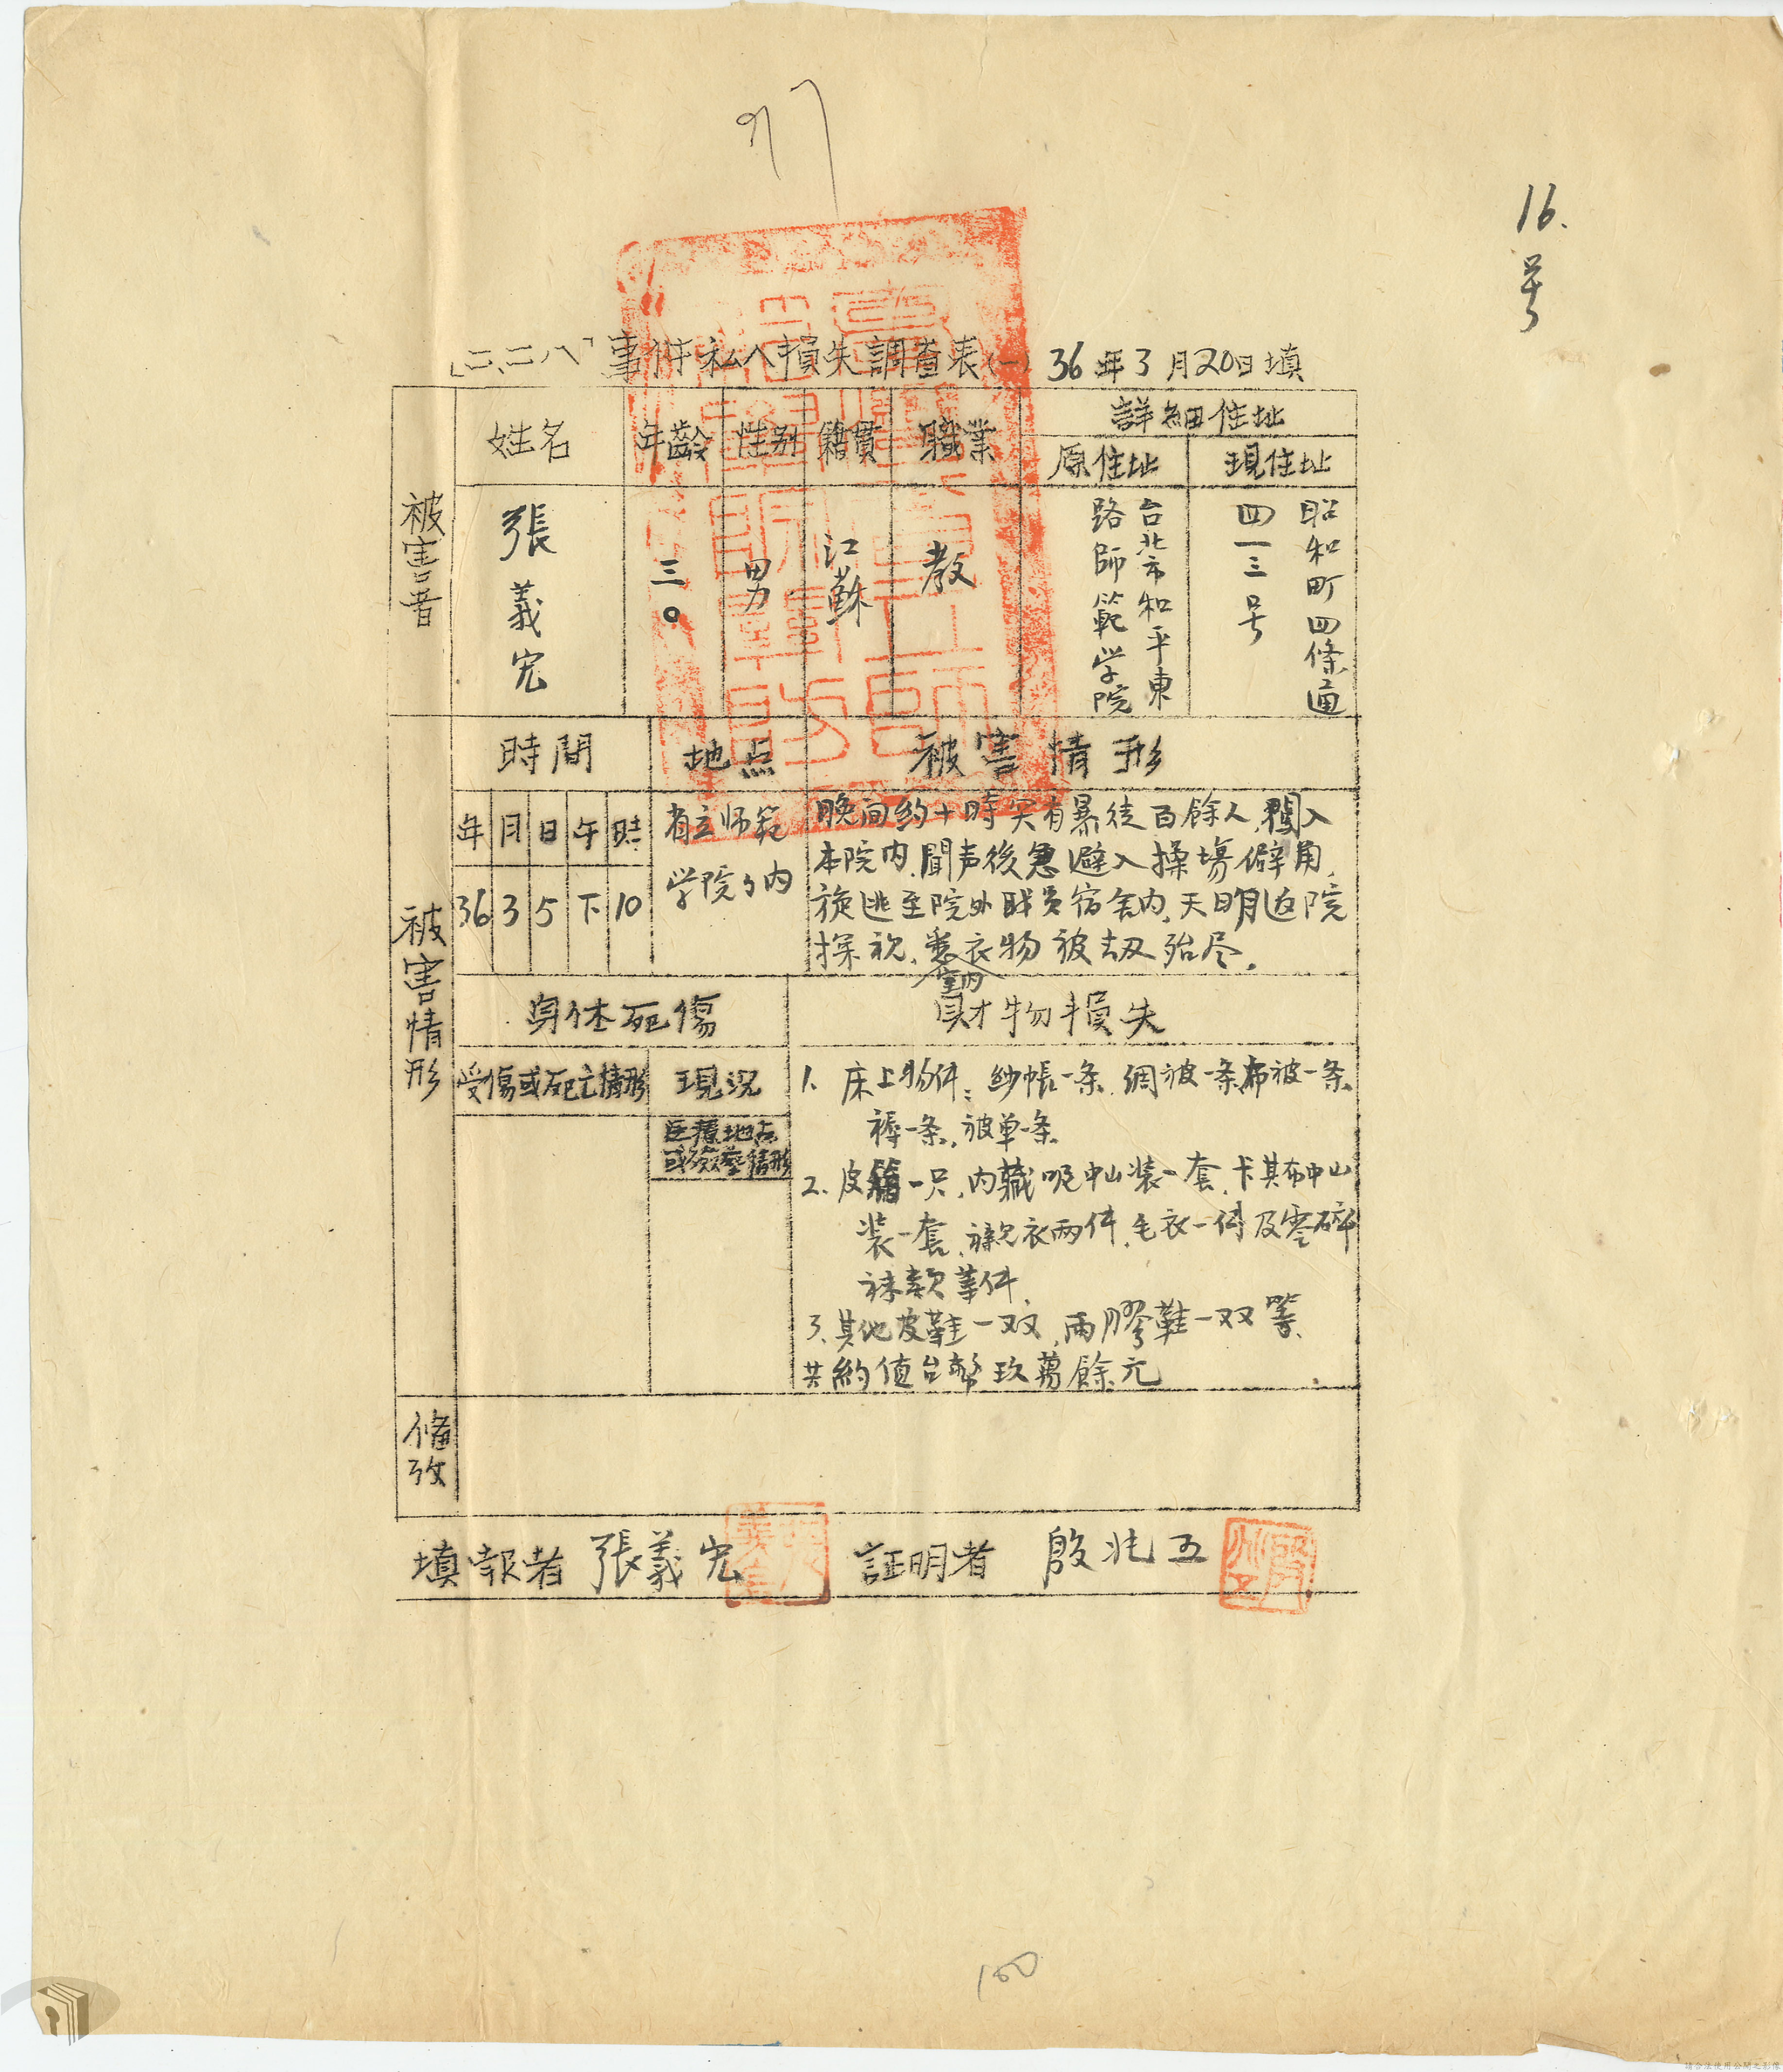 97
16.
号
「二.二八」事件私人損失調查表(一) 36年3月20日填
被害者
姓名
年齡
性別
籍貫
職業
詳細住址
原住址
現住址
張義宏
三〇
男
江蘇
教
台北市和平東
路師範学院
昭和町四條通
四一三号
被害情形
時間
地点
被害情形
年 月 日 午 時
36 3 5 下 10
省立师範
学院ろ内
晚间約十時突有暴徒百餘人,闖入
本院内,聞声後急避入操場僻角,
旋逃至院外职员宿舍内,天明返院
探視,悉室内衣物被刼殆尽。
身体死傷
財物損失
受傷或死亡情形
現況
医療地点
或殮葬情形
1、床上物件:纱帳一条.綢被一条布被一条
褥一条,被单一条
2、皮箱一只,内藏呢中山装一套,卡其布中山
装一套,襯衣兩件,毛衣一件及零碎
袜 等件
3、其他皮鞋一双,雨膠鞋一双等、
共約值台幣玖萬餘元
備攷
填報者 張義宏
証明者 殷兆五
100